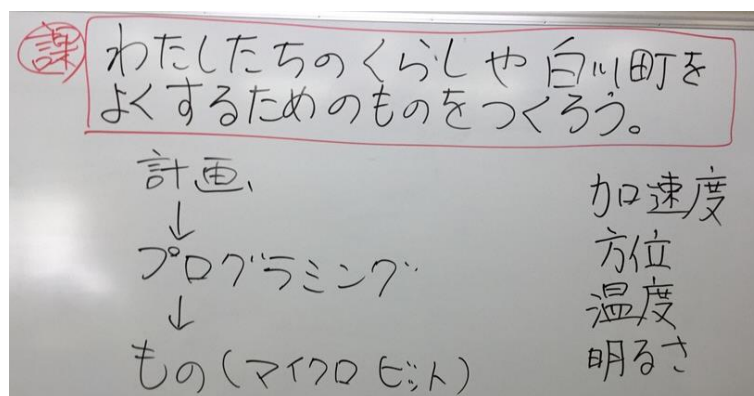 課 わたしたちのくらしや白川町を
よくするためのものをつくろう。
計画、
↓
プログラミング
↓
もの(マイクロビット)
加速度
方位
温度
明るさ